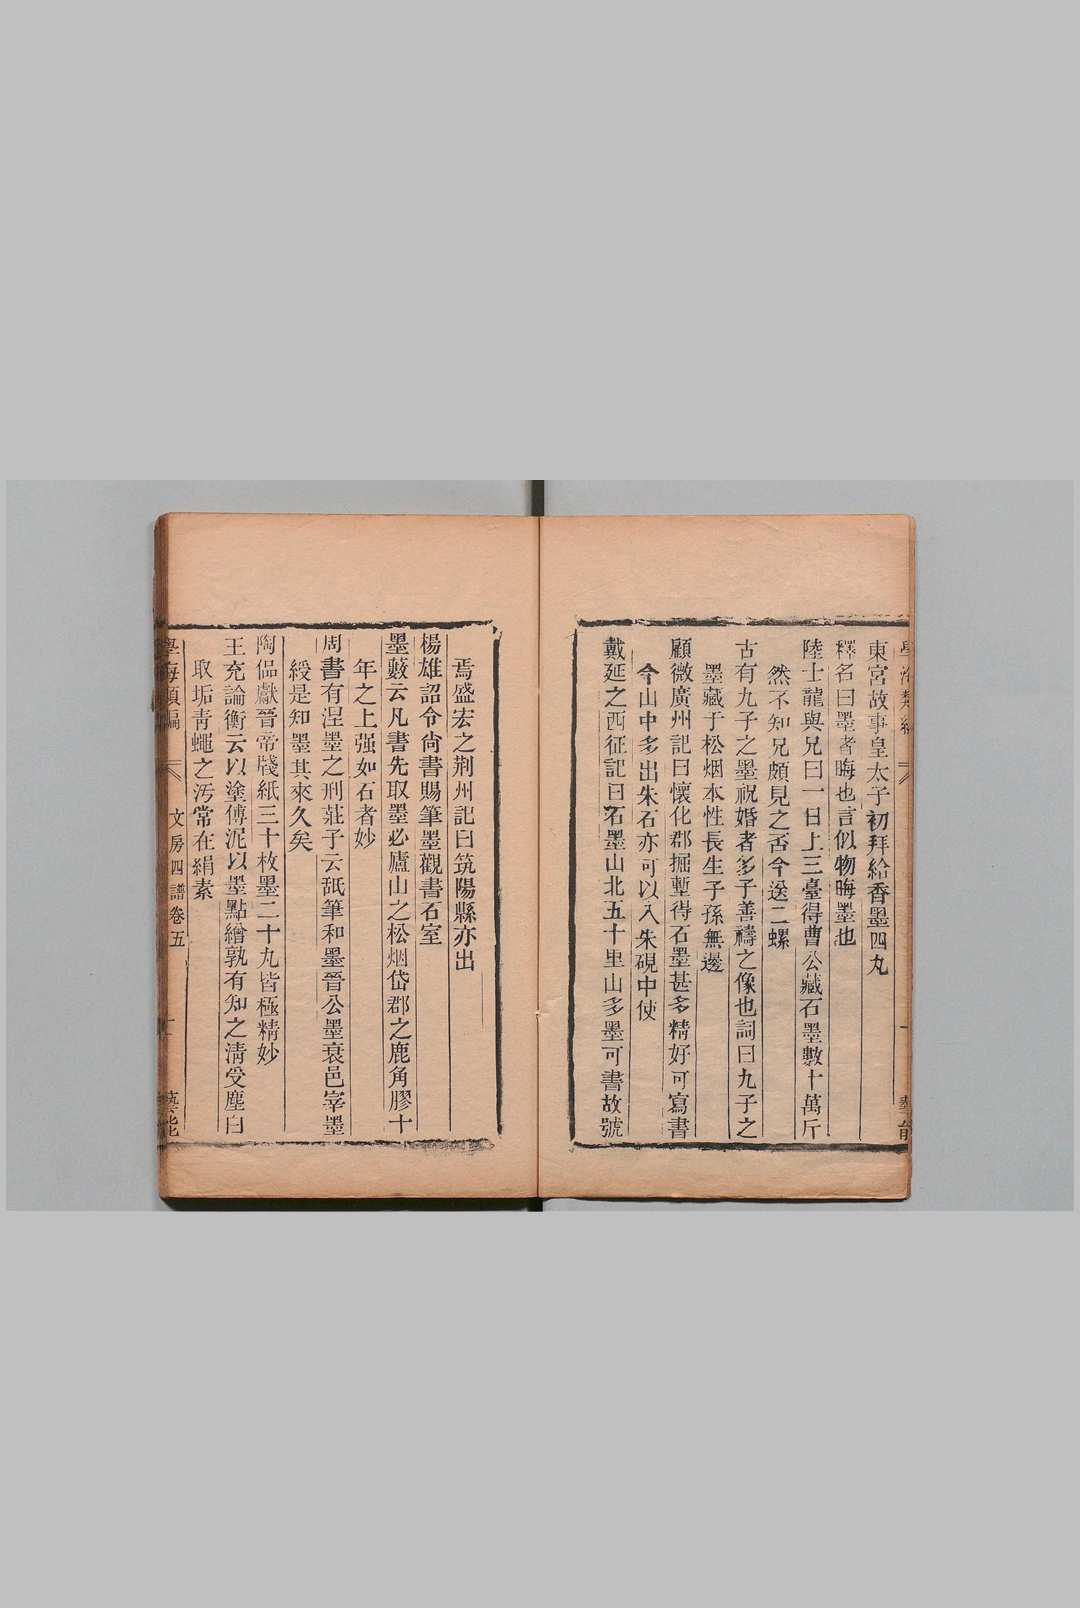 東宮故事皇太子初拜給香墨四丸
釋名曰墨者晦也言似物晦墨也
陸士龍與兄曰一日上三臺得曹公藏石墨數十萬斤
然不知兄頗見之否今送二螺
古有九子之墨祝婚者多子善禱之像也詞曰九子之
墨藏于松烟本性長生子孫無邊
顧微廣州記曰懷化郡掘塹得石墨甚多精好可寫書
今山中多出朱石亦可以入朱硯中使
戴延之西征記曰石墨山北五十里山多墨可書故號
焉盛宏之荆州記曰筑陽縣亦出
楊雄詔令尙書賜筆墨觀書石室
墨藪云凡書先取墨必廬山之松烟岱郡之鹿角膠十
年之上强如石者妙
周書有涅墨之刑莊子云舐筆和墨晉公墨衰邑宰墨
綬是知墨其來久矣
陶侃獻晉帝牋紙三十枚墨二十丸皆極精妙
王充論衡云以塗傅泥以墨點繒孰有知之清受塵白
取垢靑蠅之汚常在絹素
學海類編
文房四譜卷五
十
藝能